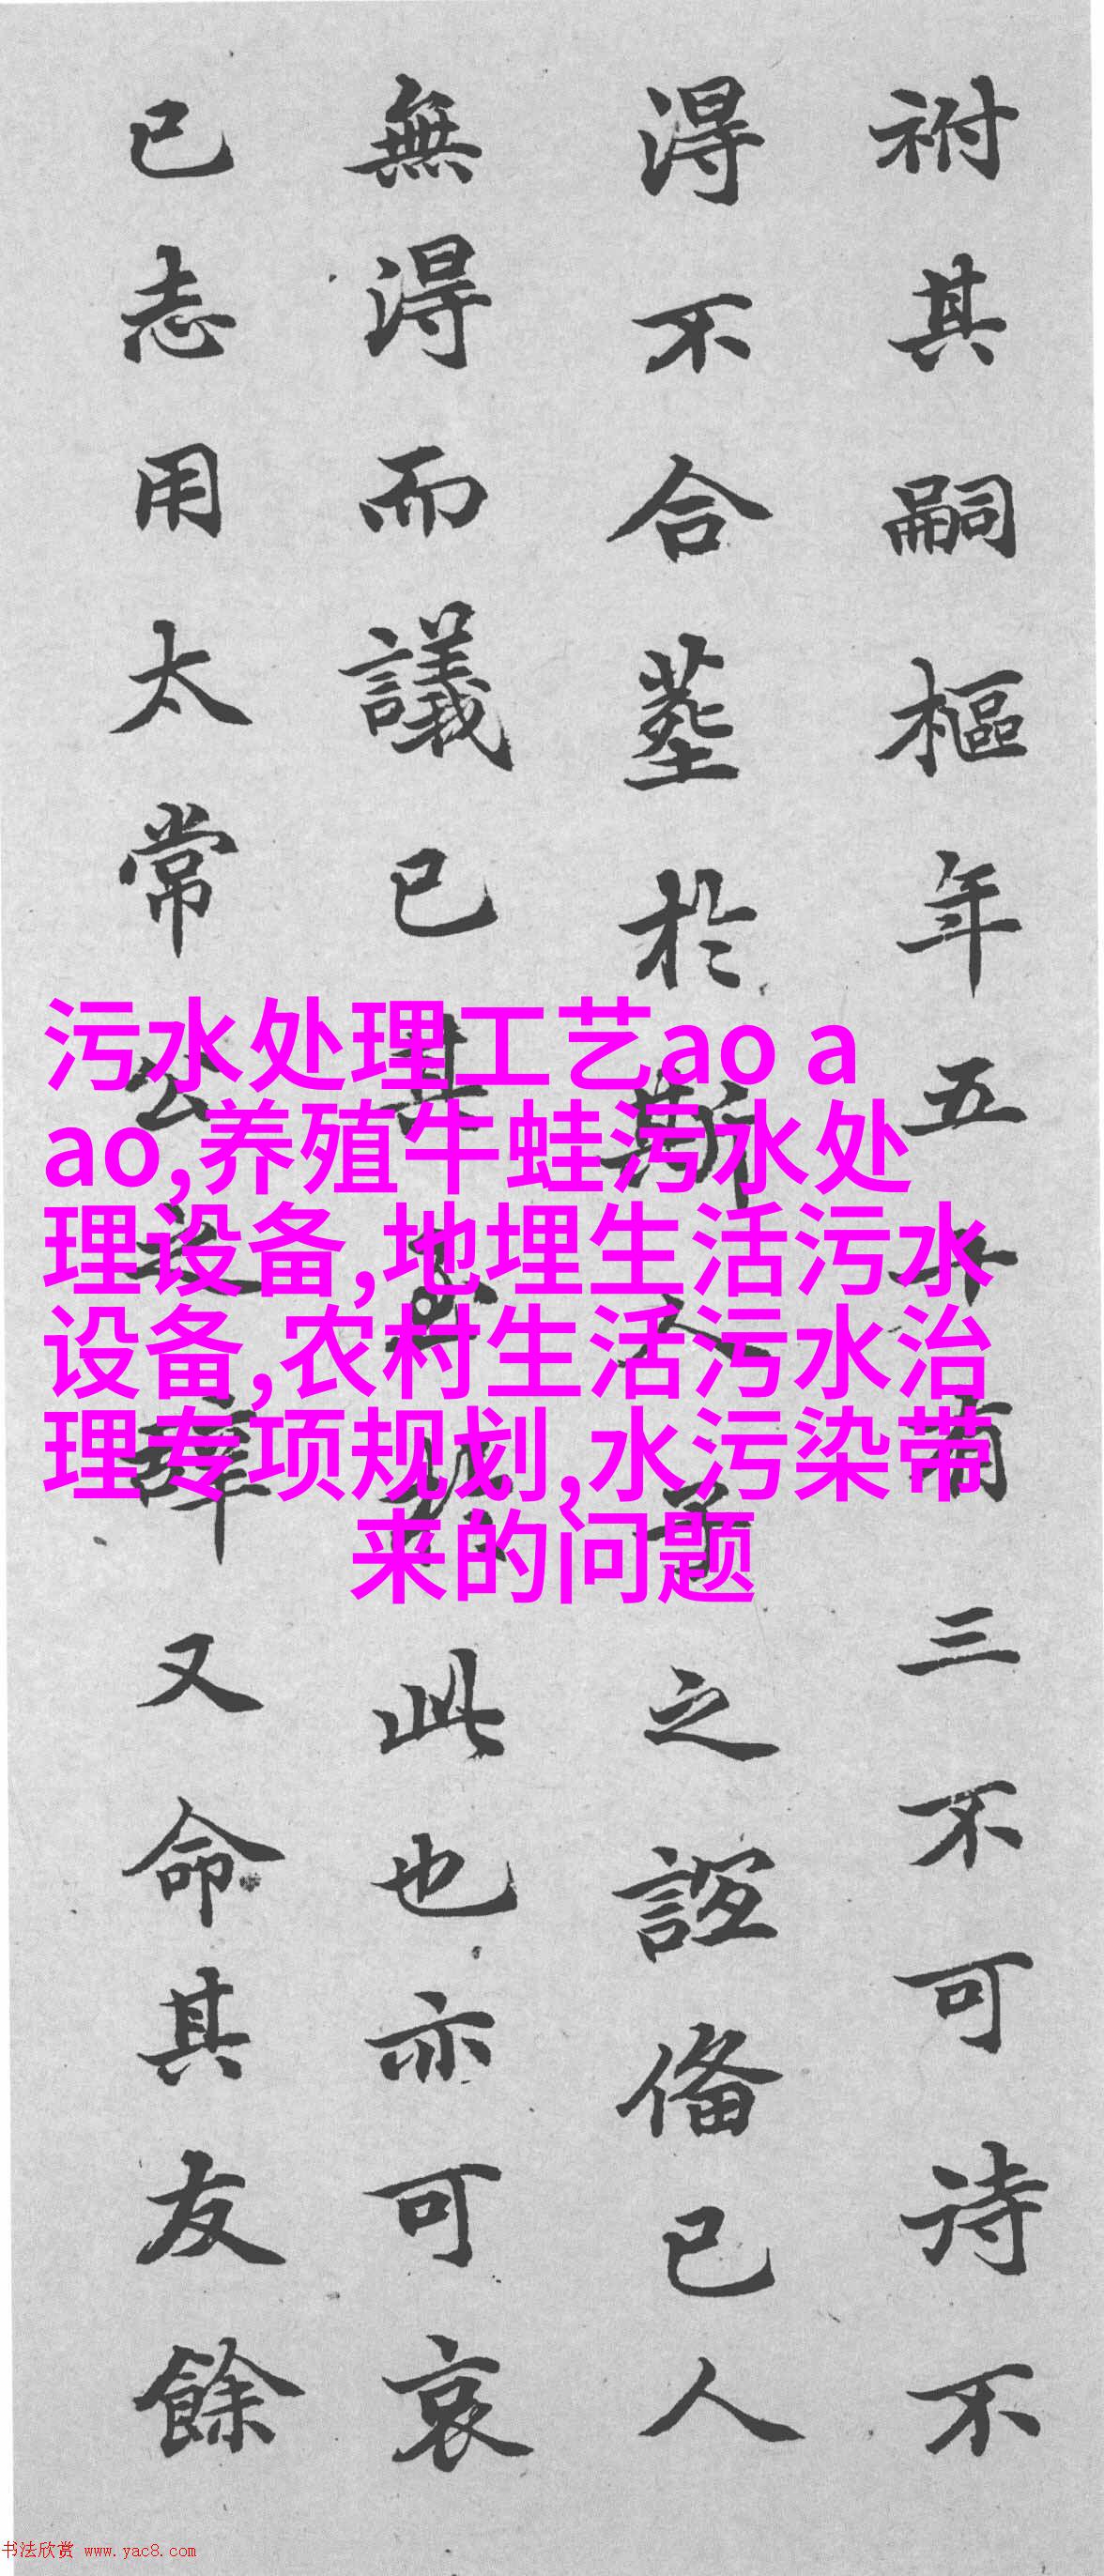 祔其嗣樞年五十有三不可待不
得不合葬於斯人子之誼備已人
無得而議已其此也亦可哀
已志用太常公之辭又命其友餘
污水处理工艺ao a
ao,养殖牛蛙污水处
理设备,地埋生活污水
设备,农村生活污水治
理专项规划,水污染带
来的问题
书法欣赏 www.yac8.com